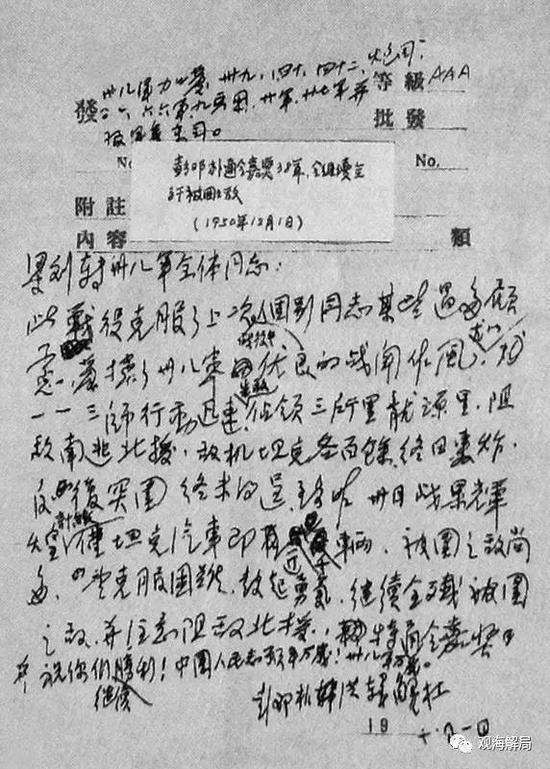 卅九、四十、四十二、炮司、 等級 AAA
發 六六军九兵团、廿军、廿七军并 批發
报军委东司。
No. No.
通令嘉奖38军,
歼被围之敌
(1950年12月1日)
附註
内容 類
梁刘转卅八军全体同志:
此战役克服了上次战役中个别同志某些过多顾
虑,发揚了卅八军优良的战闘作風,尤以
一一三师行动迅速,佔领三所里龍源里,阻
敌南逃北援,敌机坦克各百餘,终日轰炸,
反復突围,终未得逞,至昨卅日战果輝
煌,计缴仅坦克汽車即近千辆,被围之敌尚
多,望克服困难,鼓起勇氣,继续全歼被围
之敌,并注意阻敌北援,特通令嘉奖
并祝你们继续勝利!中国人民志愿军万岁!卅八军万岁。
彭邓朴洪韩解杜
19
观海解局